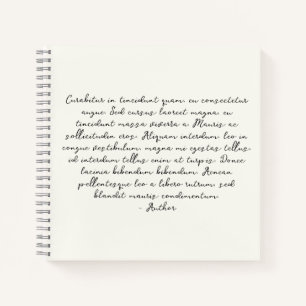 Curabitur in tincidunt quam, eu consectetur
augue. Sed cursus laoreet magna, eu
tincidunt massa viverra a. Mauris ac
sollicitudin eros. Aliquam interdum, leo in
congue vestibulum, magna mi egestas tellus,
id interdum tellus enim at turpis. Donec
lacinia bibendum bibendum. Aenean
pellentesque leo a libero rutrum, sed
blandit mauris condimentum.
- Author